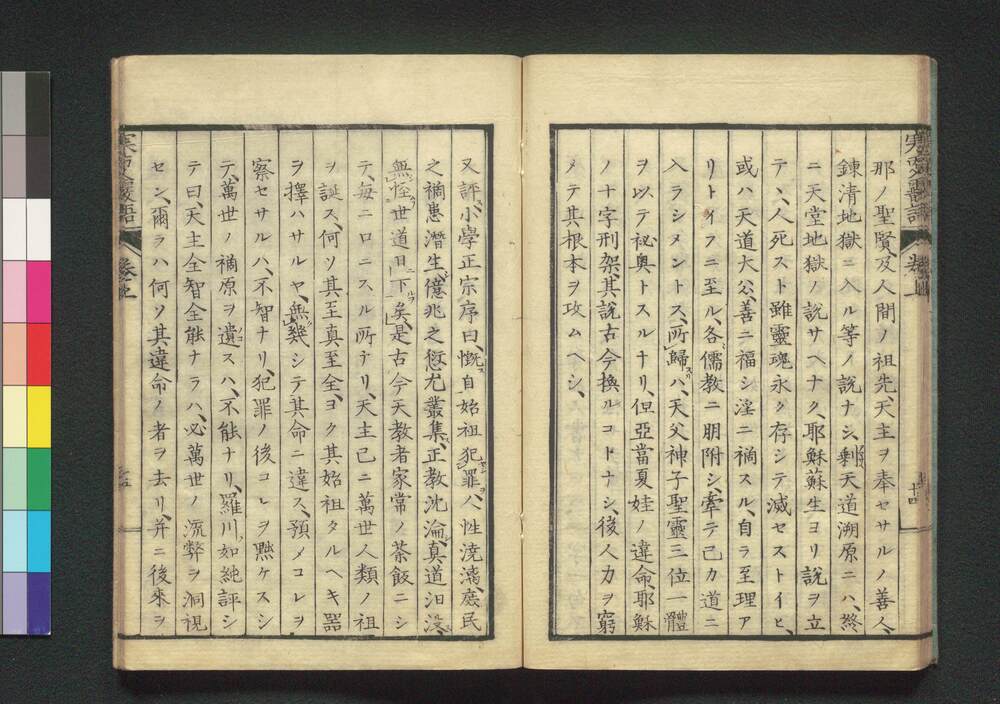 那ノ聖賢、及人間ノ祖先、天主ヲ奉セサルノ善人、
鍊清地獄ニ入ル等ノ說ナシ、剩天道溯原ニハ、終
ニ天堂地獄ノ說サヘナク、耶穌蘇生ヨリ說ヲ立
テヽ、人死スト雖靈魂永ク存シテ滅セストイヒ、
或ハ天道大公、善ニ福シ淫ニ禍スル、自ラ至理ア
リトイフニ至ル、各儒教ニ朋附シ、牽テ己カ道ニ
入ラシメントス、所歸ハ、天父神子聖靈三位一體
ヲ以テ祕奧トスルナリ、但亞當夏娃ノ違命、耶穌
ノ十字刑架、其說古今換ルコトナシ、後人力ヲ窮
メテ其根本ヲ攻ムヘシ、
又評小學正宗序曰、慨自始祖犯罪、人性澆漓、庶民
之禍患潛生、億兆之愆尤叢集、正教沈淪、真道汨没、
無怪世道日下矣、是古今天教者家常ノ茶飯ニシ
テ、每ニロニスル所ナリ、天主已ニ萬世人類ノ祖
ヲ誕ス、何ソ其至真至全、ヨク其始祖タルヘキ器
ヲ擇ハサルヤ、無幾シテ其命ニ違ス、預メコレヲ
察セサルハ、不智ナリ、犯罪ノ後コレヲ黙ケスシ
テ、萬世ノ禍原ヲ遺スハ、不能ナリ、羅川如純評シ
テ曰、天主全智全能ナラハ、必萬世ノ流弊ヲ洞視
セン、爾ラハ何ソ其違命ノ者ヲ去リ、并ニ後來ヲ